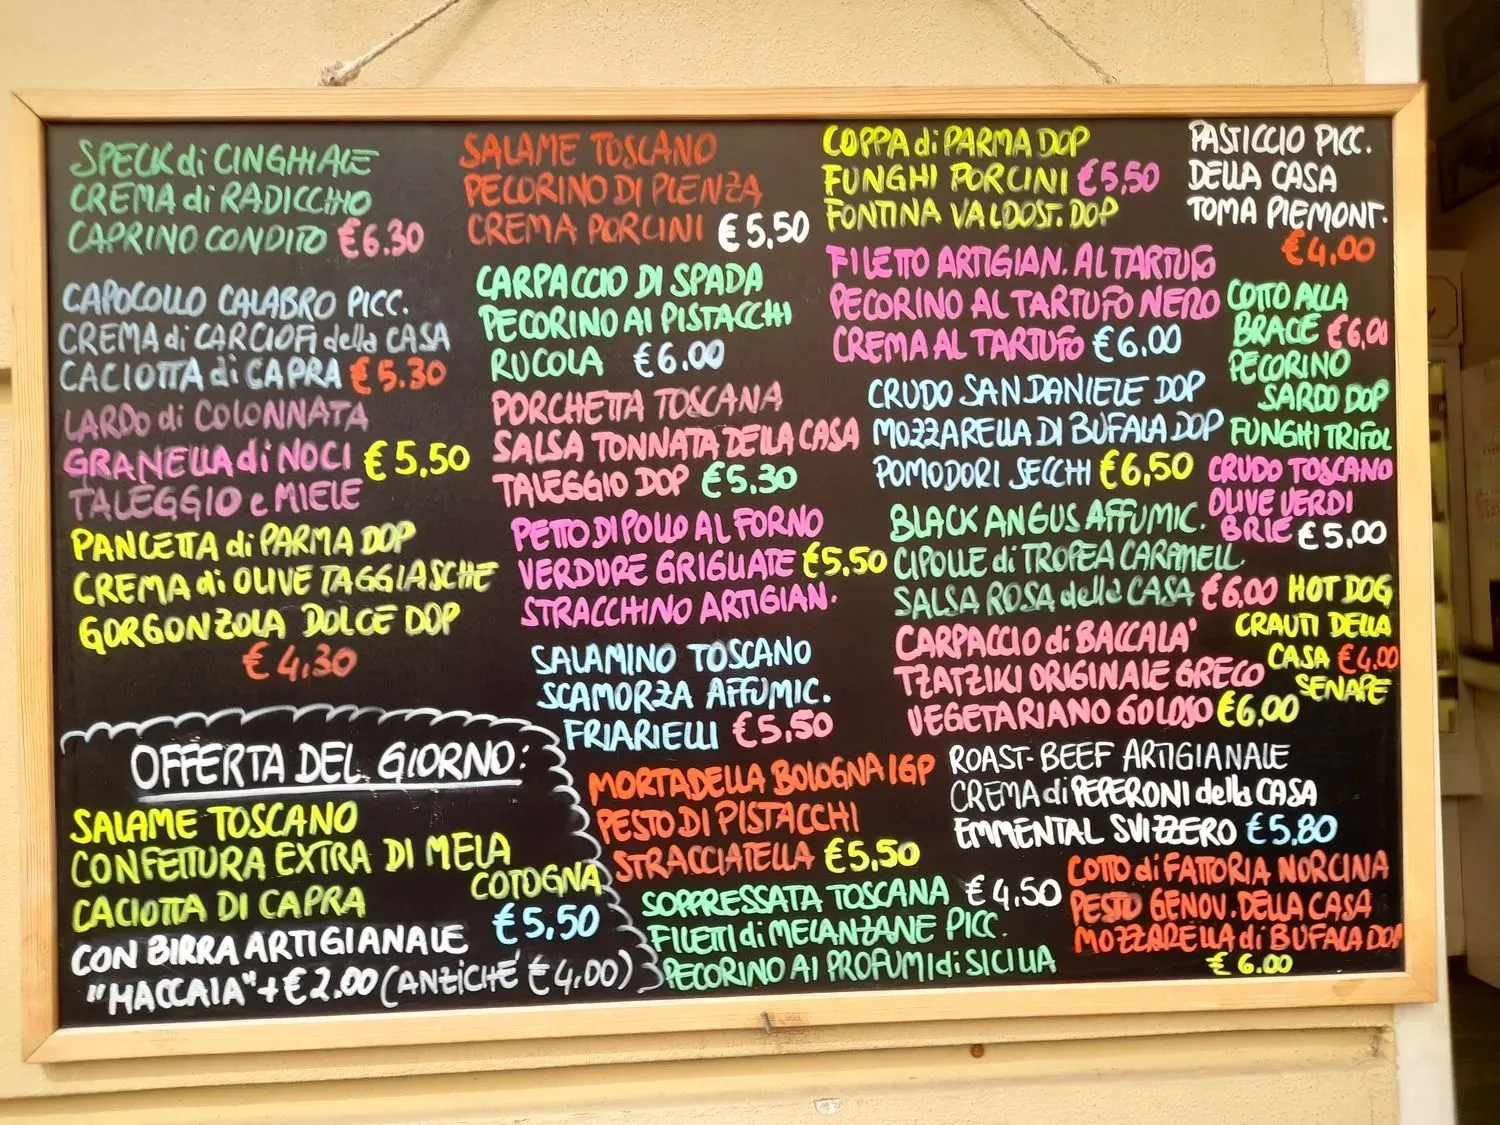 SPECK di CINGHIALE
CREMA di RADICCHIO
CAPRINO CONDITO €6.30
CAPOCOLLO CALABRO PICC.
CREMA di CARCIOFI della CASA
CACIOTTA di CAPRA €5.30
LARDO di COLONNATA
GRANELLA di NOCI €5,50
TALEGGIO e MIELE
PANCETTA di PARMA DOP
CREMA di OLIVE TAGGIASCHE
GORGONZOLA DOLCE DOP
€4,30
OFFERTA DEL GIORNO:
SALAME TOSCANO
CONFETTURA EXTRA DI MELA
COTOGNA
CACIOTTA DI CAPRA
€5,50
CON BIRRA ARTIGIANALE
"MACCAIA" + €2.00 (ANZICHE' €4,00)
SALAME TOSCANO
PECORINO DI PIENZA
CREMA PORCINI €5,50
CARPACCIO DI SPADA
PECORINO AI PISTACCHI
RUCOLA €6.00
PORCHETTA TOSCANA
SALSA TONNATA DELLA CASA
TALEGGIO DOP €5.30
PETTO DI POLLO AL FORNO
VERDURE GRIGLIATE €5,50
STRACCHINO ARTIGIAN.
SALAMINO TOSCANO
SCAMORZA AFFUMIC.
FRIARIELLI €5,50
MORTADELLA BOLOGNA IGP
PESTO DI PISTACCHI
STRACCIATELLA €5,50
SOPPRESSATA TOSCANA €4,50
FILETTI di MELANZANE PICC.
PECORINO AI PROFUMI di SICILIA
COPPA di PARMA DOP
FUNGHI PORCINI €5,50
FONTINA VALDOST. DOP
FILETTO ARTIGIAN. AL TARTUFO
PECORINO AL TARTUFO NERO
CREMA AL TARTUFO €6,00
CRUDO SAN DANIELE DOP
MOZZARELLA DI BUFALA DOP
POMODORI SECCHI €6,50
BLACK ANGUS AFFUMIC.
CIPOLLE di TROPEA CARAMELL.
SALSA ROSA della CASA €6,00
CARPACCIO di BACCALA'
TZATZIKI ORIGINALE GRECO
VEGETARIANO GOLOSO €6.00
ROAST-BEEF ARTIGIANALE
CREMA di PEPERONI della CASA
EMMENTAL SVIZZERO €5,80
COTTO di FATTORIA NORCINA
PESTO GENOV. DELLA CASA
MOZZARELLA di BUFALA DOP
€6.00
PASTICCIO PICC.
DELLA CASA
TOMA PIEMONT.
€4,00
COTTO ALLA
BRACE €6,00
PECORINO
SARDO DOP
FUNGHI TRIFOL
CRUDO TOSCANO
OLIVE VERDI
BRIE €5,00
HOT DOG
CRAUTI DELLA
CASA €4.00
SENAPE